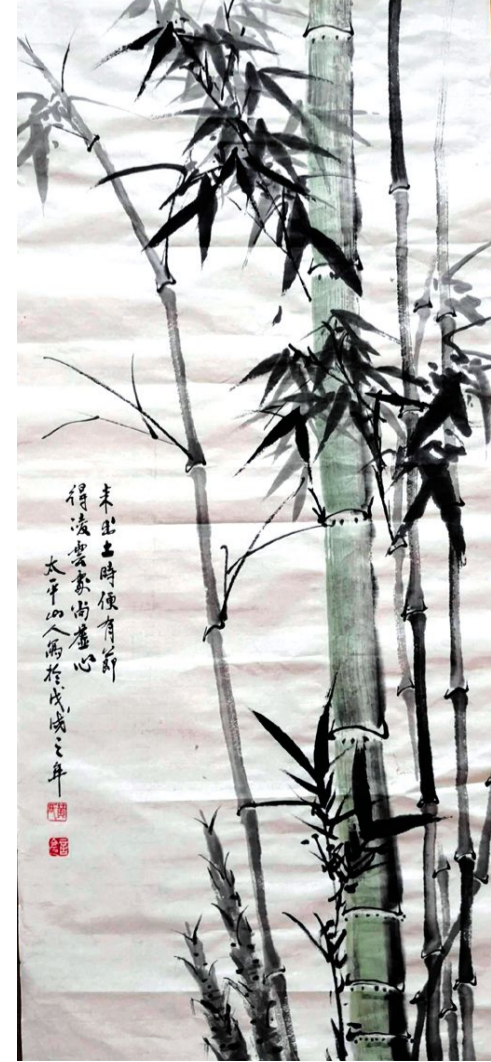 未出土時便有節
得凌雲處尚虛心
太平山人寫於戊戌之年